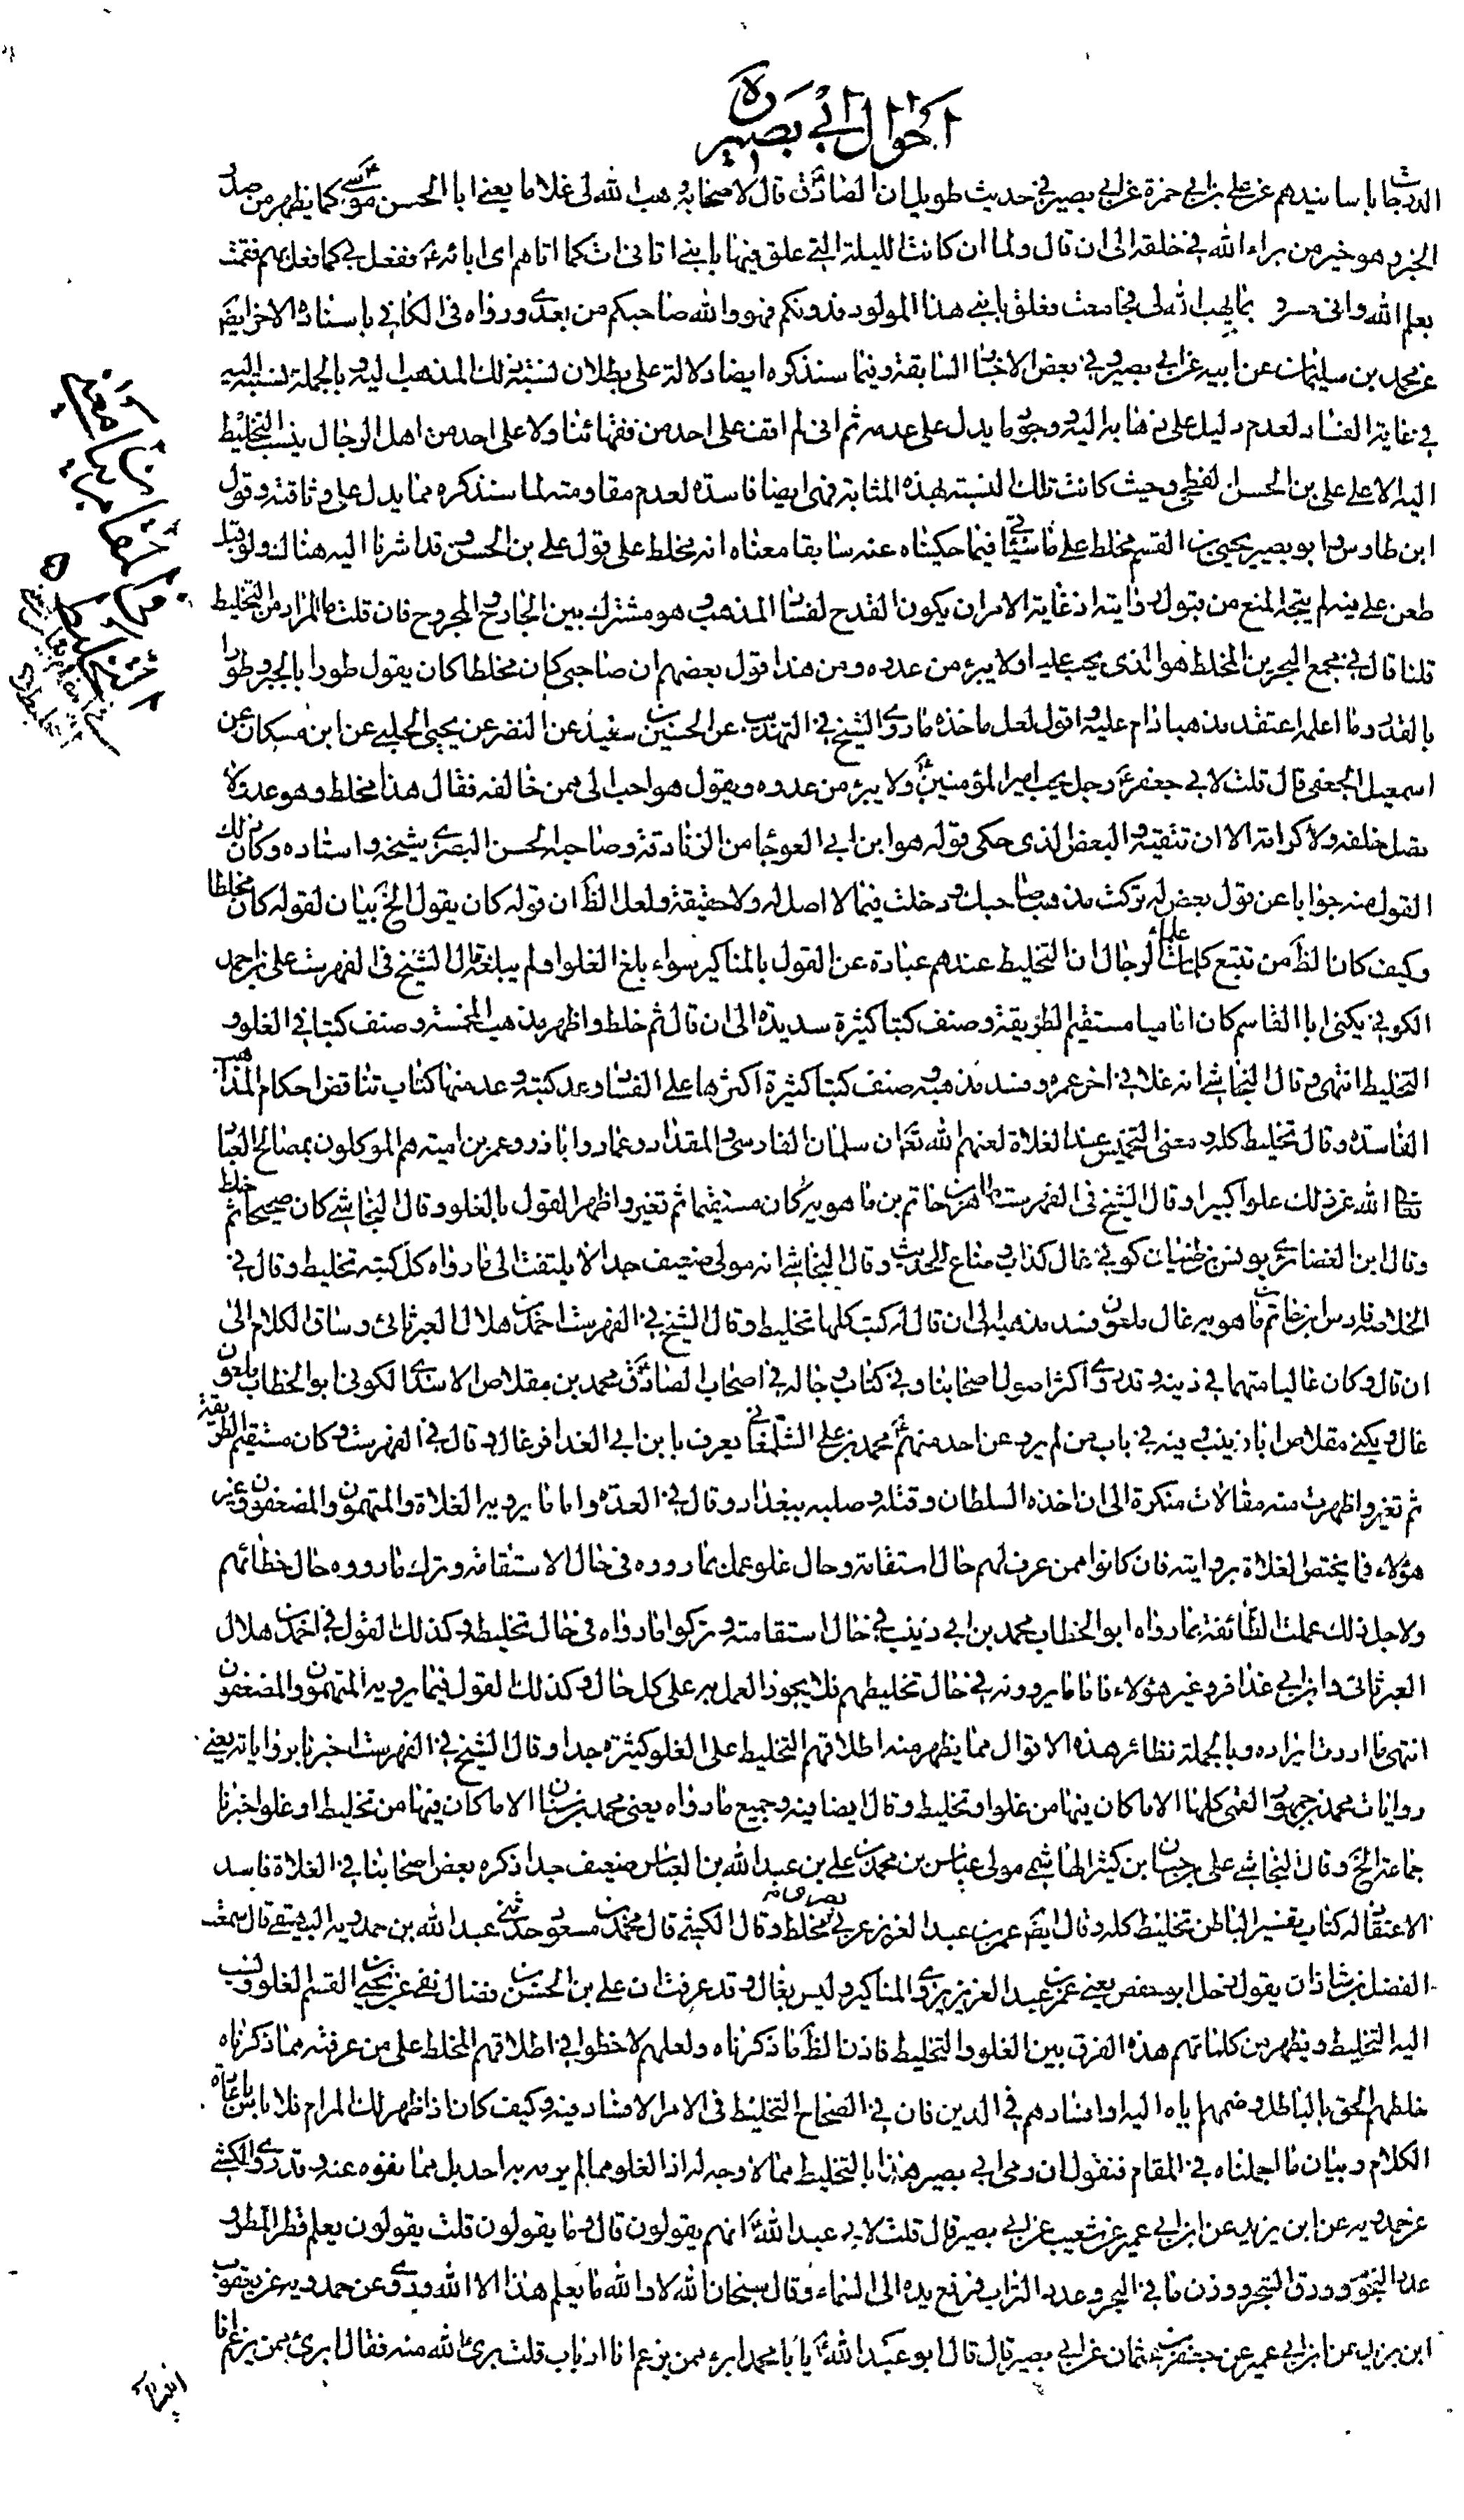 احوال ابي بصير ره
الدرجات باسانيدهم عن علي بن ابي حمزة عن ابي بصير في حديث طويل ان الصادق قال لاصحابه وهب الله لي غلاما يعني ابا الحسن موسى كما يظهر من صدر
الخبر وهو خير من براء الله في خلقه الى ان قال ولما ان كانت الليلة التي علق فيها بابني اتاني ات كما اتاهم اى ابائه ففعل بي كما فعل بهم فقمت
بعلم الله واني مسرور بما يهب الله لي فجامعت فعلق بابني هذا المولود فدونكم فهو والله صاحبكم من بعدي ورواه في الكافي باسناده الاخر ايضا
عن محمد بن سليمان عن ابيه عن ابي بصير وفي بعض الاخبار السابقة وفيما سنذكره ايضا دلالة على بطلان نسبة ذلك المذهب اليه وبالجملة نسبته اليه
في غاية العناد لعدم دليل على ذهابه اليه ووجود ما يدل على عدمه ثم اني لم اقف على احد من فقهائنا ولا على احد من اهل الرجال ينسب التخليط
اليه الا على علي بن الحسن الفطحي وحيث كانت تلك النسبة بهذه المثابة فهى ايضا فاسدة لعدم مقاومته لما سنذكره مما يدل على وثاقته وقول
ابن طاوس وابو بصير يحيى بن القسم مخلط على ما سيأتي فيما حكيناه عنه سابقا معناه انه مخلط على قول علي بن الحسن وقد اشرنا اليه هنالك ولو قبل
طعن علي فيه لم يتجه المنع من قبول روايته اذ غاية الامر ان يكون القدح لفساد المذهب وهو مشترك بين الجارح والمجروح فان قلت ما المراد من التخليط
قلنا قال في مجمع البحرين المخلط هو الذى يحب عليا ولا يبرء من عدوه ومن هذا قول بعضهم ان صاحبي كان مخلطا كان يقول طورا بالجبر وطورا
بالقدر وما اعلمه اعتقد مذهبا دام عليه اقول لعل ماخذه ما رواه الشيخ في التهذيب عن الحسين بن سعيد عن النضر عن يحيى الحلبي عن ابن مسكان عن
اسمعيل الجعفي قال قلت لابي جعفر رجل يحب امير المؤمنين ولا يبرء من عدوه ويقول هو احب الى ممن خالفه فقال هذا مخلط وهو عدو لا
تصل خلفه ولا كرامة الا ان تتقيه والبعض الذى حكى قوله هو ابن ابي العوجا من الزنادقة وصاحبه الحسن البصرى شيخه واستاده وكان ذلك
القول منه جوابا عن قول بعض له تركت مذهب صاحبك ودخلت فيما لا اصل له ولا حقيقة ولعل الظ ان قوله كان يقول الخ بيان لقوله كان مخلطا
وكيف كان الظ من تتبع كلمات علماء الرجال ان التخليط عندهم عبارة عن القول بالمناكير سواء بلغ الغلو او لم يبلغه قال الشيخ في الفهرست علي بن احمد
الكوفي يكنى ابا القاسم كان اماميا مستقيم الطريقة وصنف كتبا كثيرة سديدة الى ان قال ثم خلط واظهر مذهب المخمسة وصنف كتبا في الغلو و
التخليط انتهى وقال النجاشي انه غلا في اخر عمره وفسد مذهبه وصنف كتبا كثيرة اكثرها على الفساد وعد كتبه وعد منها كتاب تناقض احكام المذاهب
الفاسدة وقال تخليط كله ومعنى التخميس عند الغلاة لعنهم الله تع ان سلمان الفارسي والمقداد وعمار وابا ذر وعمر بن امية هم الموكلون بمصالح العباد
تعالى الله عن ذلك علوا كبيرا وقال الشيخ في الفهرست طاهر بن حاتم بن ماهويه كان مستقيما ثم تغير واظهر القول بالغلو وقال النجاشي كان صحيحا ثم خلط
وقال ابن الغضائري يونس بن ظبيان كوفي غال كذاب وضاع الحديث وقال النجاشي انه مولى ضعيف جدا لا يلتفت الى ما رواه كل كتبه تخليط وقال في
الخلاصة فارس بن حاتم بن ماهويه غال ملعون فسد مذهبه الى ان قال له كتب كلها تخليط وقال الشيخ في الفهرست احمد بن هلال العبرتائي وساق الكلام الى
ان قال وكان غاليا متهما في دينه وقد روى اكثر اصول اصحابنا وفي كتاب رجاله في اصحاب الصادق محمد بن مقلاص الاسدي الكوفي ابو الخطاب ملعون
غال ويكنى مقلاص ابا زينب وفيه في باب من لم يرو عن احد منهم محمد بن علي الشلمغاني يعرف بابن ابي العذافر غال وقال في الفهرست وكان مستقيم الطريقة
ثم تغير واظهرت منه مقالات منكرة الى ان اخذه السلطان وقتله وصلبه ببغداد وقال في العدة واما ما يرويه الغلاة والمتهمون والمضعفون وغير
هؤلاء فما يختص الغلاة بروايته فان كانوا ممن عرف لهم حال استقامة وحال غلو عمل بما رووه في حال الاستقامة وترك ما رووه حال خطائهم
ولاجل ذلك عملت الطائفة بما رواه ابو الخطاب محمد بن ابي زينب في حال استقامته وتركوا ما رواه في حال تخليطه وكذلك القول في احمد بن هلال
العبرتائي وابن ابي عذافر وغير هؤلاء فاما ما يروونه في حال تخليطهم فلا يجوز العمل به على كل حال وكذلك القول فيما يرويه المتهمون والمضعفون
انتهى ما اردت ايراده وبالجملة نظائر هذه الاقوال مما يظهر منه اطلاقهم التخليط على الغلو كثيرة جدا وقال الشيخ في الفهرست اخبرنا برواياته يعني
روايات محمد بن جمهور القمي كلها الا ما كان فيها من غلو او تخليط وقال ايضا فيه وجميع ما رواه يعني محمد بن سنان الا ما كان فيها من تخليط او غلو اخبرنا
جماعة الخ وقال النجاشي علي بن حسان ابن كثير الهاشمي مولى عباس بن محمد بن علي بن عبد الله بن العباس ضعيف جدا ذكره بعض اصحابنا في الغلاة فاسد
الاعتقاد له كتاب تفسير الباطن تخليط كله وقال ايضا عمر بن عبد العزيز عربي بصري مخلط وقال الكشي قال محمد بن مسعود حدثني عبد الله بن حمدويه البيهقي قال سمعت
الفضل بن شاذان يقول زحل ابو حفص يعني عمر بن عبد العزيز يروى المناكير وليس بغال وقد عرفت ان علي بن الحسن بن فضال نفى عن يحيى بن القسم الغلو ونسب
اليه التخليط ويظهر من كلماتهم هذه الفرق بين الغلو والتخليط فاذن الظ ما ذكرناه ولعلهم لاحظوا في اطلاقهم المخلط على من عرفته مما ذكرناه
خلطهم الحق بالباطل وضمهم اياه اليه او افسادهم في الدين فان في الصحاح التخليط في الامر الافساد فيه وكيف كان اذا ظهر لك المرام فلا باس باعادة
الكلام وبيان ما اجملناه في المقام فنقول ان رمى ابي بصير هذا بالتخليط مما لا وجه له اذ الغلو مما لم يرمه به احد بل مما نفوه عنه وقد روى الكشي
عن حمدويه عن ابن يزيد عن ابن ابي عمير عن شعيب عن ابي بصير قال قلت لابي عبد الله انهم يقولون قال وما يقولون قلت يقولون يعلم قطر المطر و
عدد النجوم وورق الشجر ووزن ما في البحر وعدد التراب فرفع يده الى السماء وقال سبحان الله لا والله ما يعلم هذا الا الله وروى عن حمدويه عن يعقوب
ابن يزيد عن ابن ابي عمير عن جعفر بن عثمان عن ابي بصير قال قال ابو عبد الله يا ابا محمد ابرء ممن يزعم انا ارباب قلت برئ الله منه فقال ابرئ ممن يزعم انا
انبياء